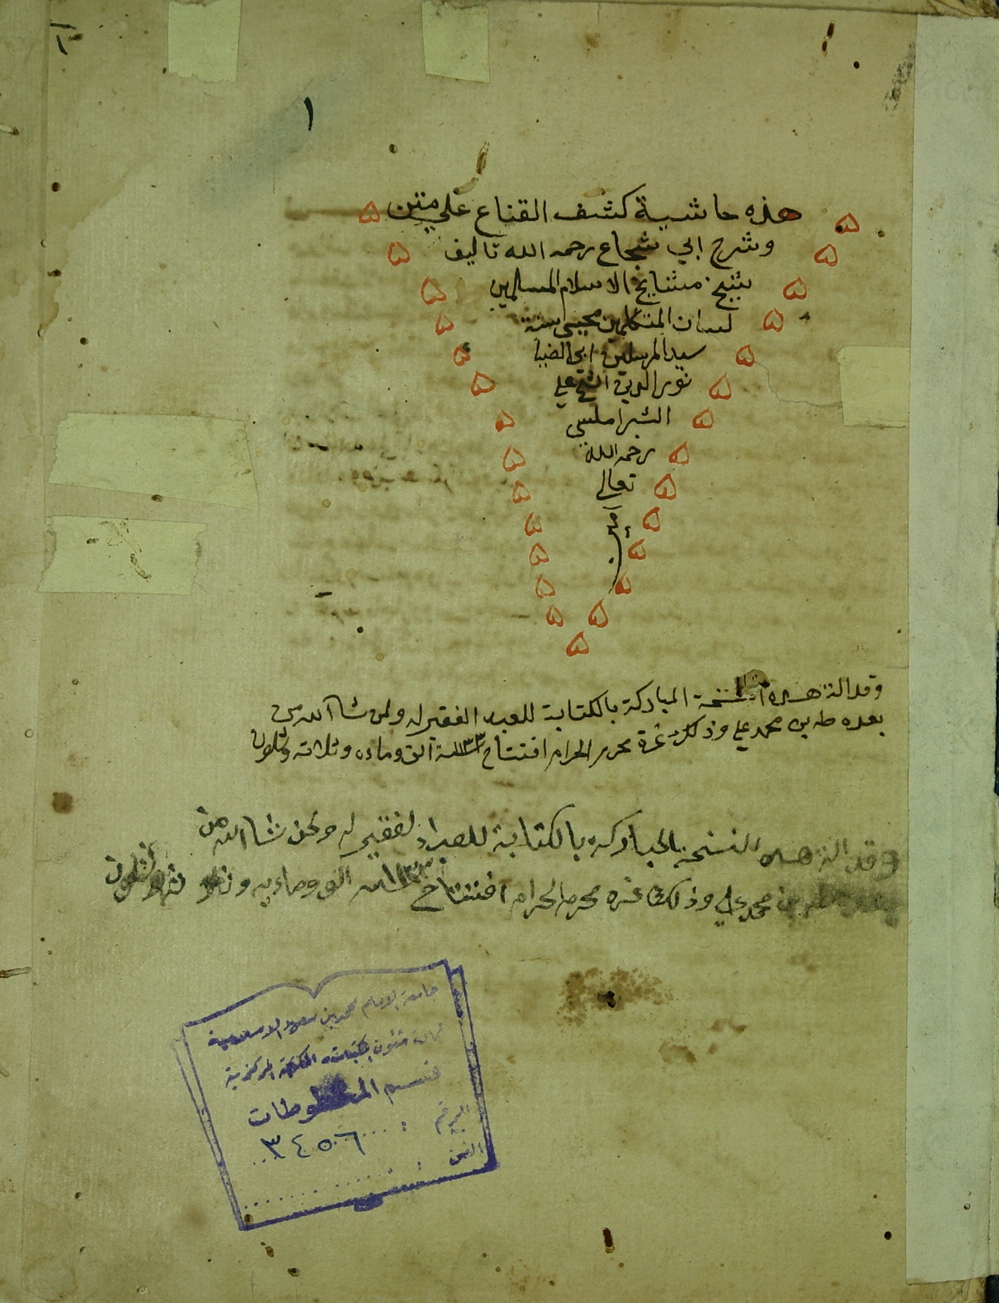 ١
هذه حاشية كشف القناع علي متن
وشرح ابي شجاع رحمه الله تاليف
شيخ مشايخ الاسلام المسلمين
لسان المتكلمين محيي سنة
سيد المرسلين ابي الضيا
نور الدين الشيخ علي
الشبراملسي
رحمه الله
تعالي
وقد الة هذه النسخة المباركة بالكتابة للعبد الفقير له ولمن شا الله من
بعده طه بن محمد علي وذلك غرة محرم الحرام افتتاح سنة ١١٣٣ الف وماءه وثلاثه وثلاثون
وقد الة هذه النسخة المباركه بالكتابة للعبد الفقير له ولمن شا الله من
بن محمد علي وذلك غره محرم الحرام افتتاح سنه ١١٣٣ الف وماءيه
جامعة الإمام محمد بن سعود الإسلامية
عمادة شئون المكتبات - المكتبة المركزية
قسم المخطوطات
الرقم : ٣٤٥٦
الفن :